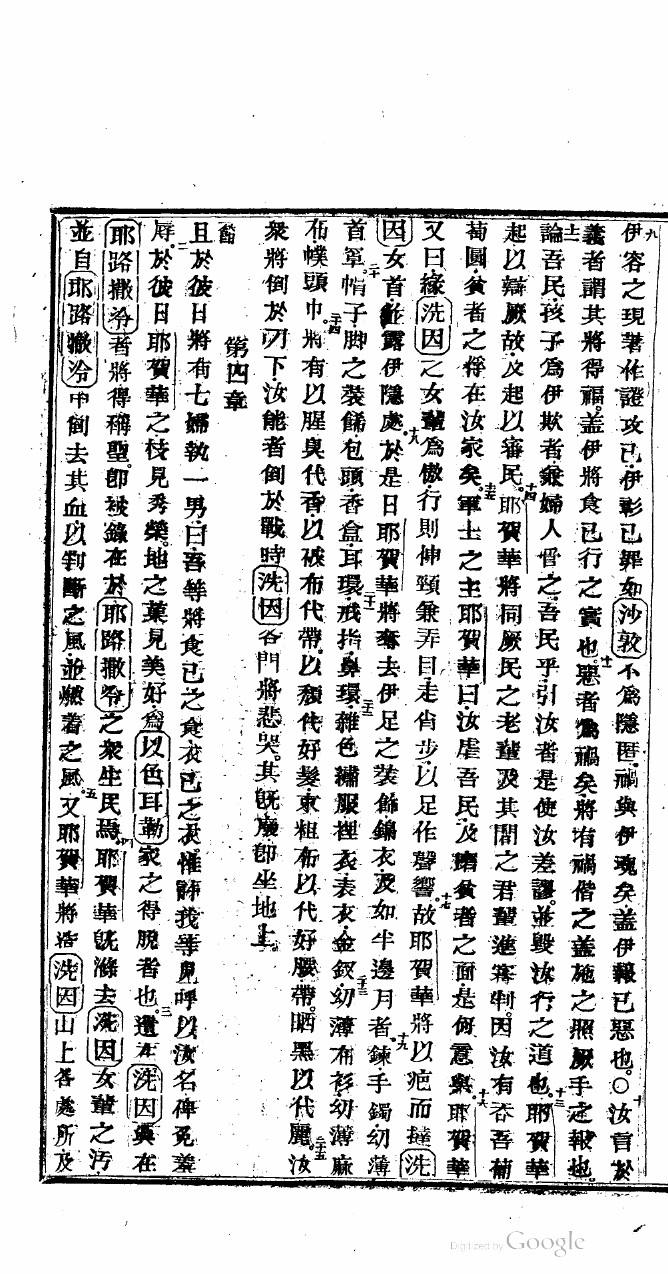 伊容之現著作證攻已伊彰已罪如沙敦不爲隱匿禍與伊魂矣蓋伊報已惡也○汝言於
義者謂其將得福蓋伊將食已行之實也惡者爲禍矣將有禍偕之蓋施之照厥手之報也
論吾民孩子爲伊欺者兼婦人管之吾民乎引汝者是使汝差謬並毀汝行之道也耶賀華
起以辯厥故及起以審民耶賀華將同厥民之老輩及其間之君輩進審判因汝有吞吾葡
萄園貧者之俘在汝家矣軍士之主耶賀華曰汝虐吾民及磨貧者之面是何意與耶賀華
又曰緣洗因之女輩爲傲行則伸頸兼弄目走肖步以足作聲響故耶賀華將以疤而撻洗
因女首並露伊隱處於是日耶賀華將奪去伊足之裝飾錦衣及如半邊月者鍊手鐲幼薄
首罩帽子脚之裝飾包頭香盒耳環戒指鼻環雜色繡服裡衣表衣金釵幼薄布衫幼薄麻
布幞頭巾將有以腥臭代香以被布代帶以頹代好髮束粗布以代好腰帶晒黑以代麗汝
衆將倒於刀下汝能者倒於戰時洗因各門將悲哭其旣廢卽坐地上
第四章
且於彼日將有七婦執一男曰吾等將食已之食衣已之衣惟許我等見呼以汝名俾免羞
辱於彼日耶賀華之枝見秀榮地之菓見美好爲以色耳勒家之得脫者也遺在洗因與在
耶路撒冷者將得稱聖卽被錄在於耶路撒冷之衆生民焉耶賀華旣滌去洗因女輩之汚
並自耶路撒冷中倒去其血以判斷之風並燃着之風又耶賀華將造洗因山上各處所及
Digitized by Google